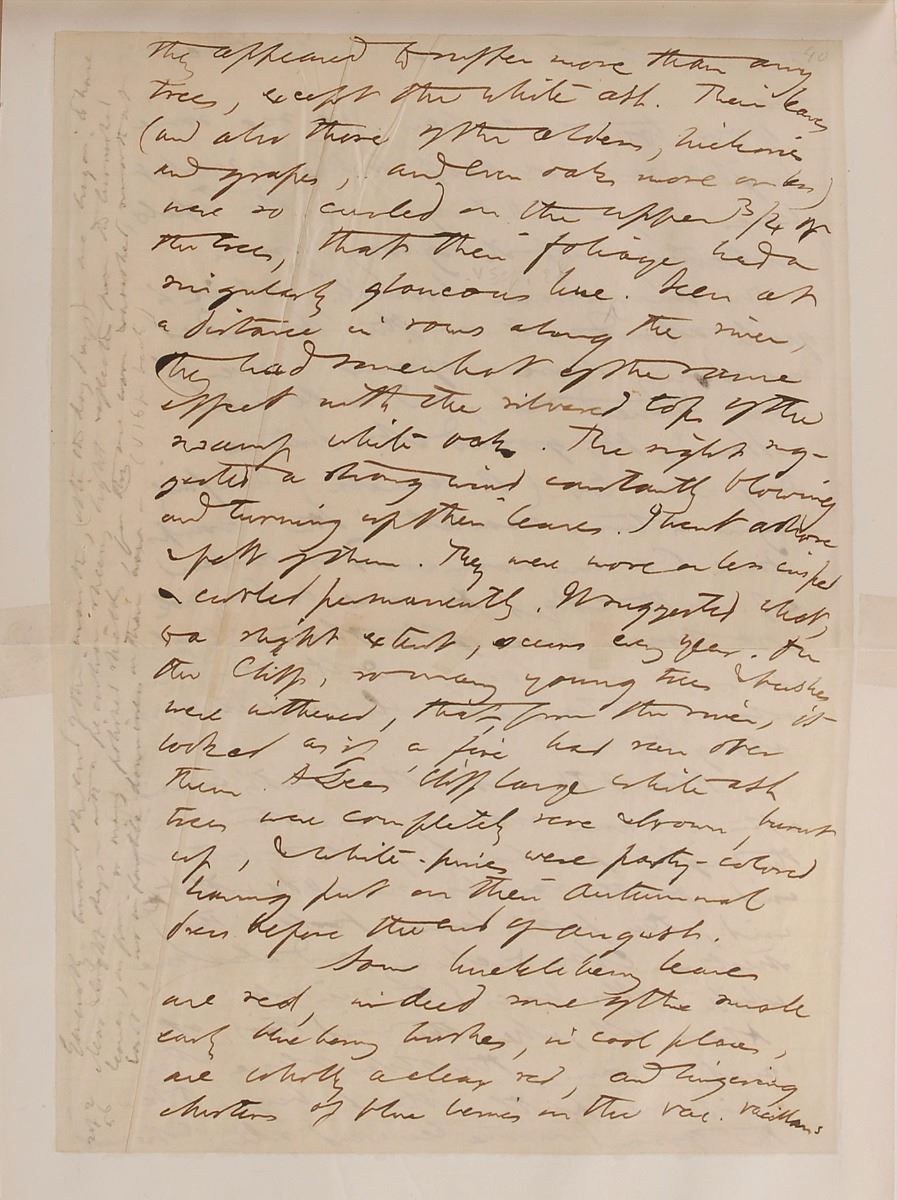 40
they appeared to suffer more than any
trees, except the white ash. Their leaves
(and also those of the alders, hickories
and grapes, and even oaks more or less)
were so curled on the upper 3/4 of
the trees, that their foliage had a
singularly glaucous hue. Seen at
a distance in rows along the river,
they had somewhat of the same
effect with the silvered tops of the
swamp white oak. The sight sug-
gested a strong wind constantly blowing
and turning up their leaves. I went ashore
& felt of them. They were more or less crisped
& curled permanently. It suggested what,
to a slight extent, occurs every year. On
the Cliffs, so many young trees & bushes
were withered, that, from the river, it
looked as if a fire had run over
them. At Lee's Cliff large white ash
trees were completely sere & brown, burnt
up, & white-pines were party-colored
having put on their autumnal
dress before the end of August.
Some huckleberry leaves
are red, indeed some of the small
early blueberry bushes, in cool places,
are wholly a clear red, and lingering
clusters of blue berries on the vac. vacillans